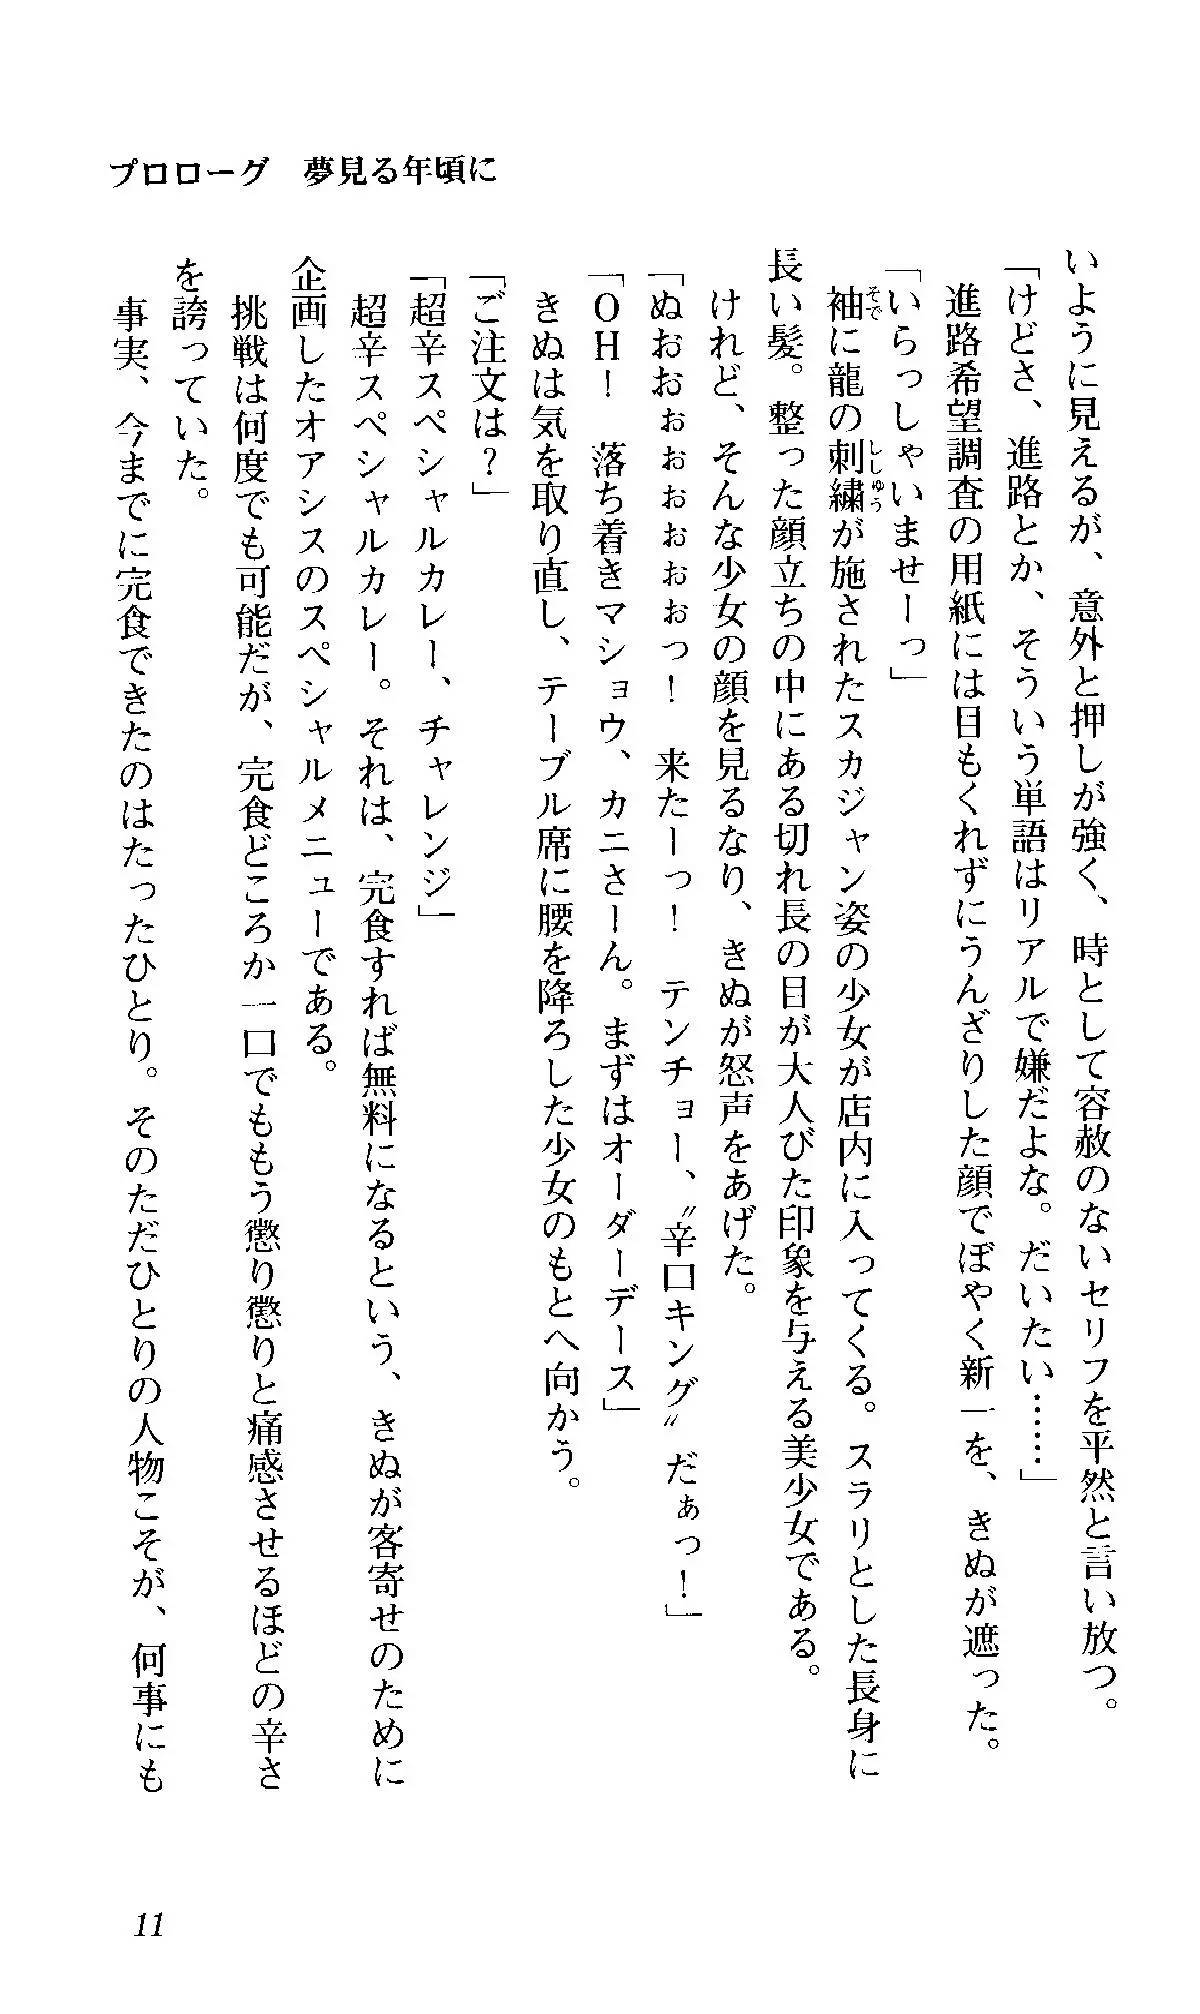 プロローグ　夢見る年頃に
いように見えるが、意外と押しが強く、時として容赦のないセリフを平然と言い放つ。
「けどさ、進路とか、そういう単語はリアルで嫌だよな。だいたい……」
進路希望調査の用紙には目もくれずにうんざりした顔でぼやく新一を、きぬが遮った。
「いらっしゃいませーっ」
袖に龍の刺繍が施されたスカジャン姿の少女が店内に入ってくる。スラリとした長身に
そで
ししゅう
長い髪。整った顔立ちの中にある切れ長の目が大人びた印象を与える美少女である。
けれど、そんな少女の顔を見るなり、きぬが怒声をあげた。
「ぬおおぉぉぉぉぉぉっ！　来たーっ！　テンチョー、〝辛口キング〟だぁっ！」
「ＯＨ！　落ち着きマショウ、カニさーん。まずはオーダーデース」
きぬは気を取り直し、テーブル席に腰を降ろした少女のもとへ向かう。
「ご注文は？」
「超辛スペシャルカレー、チャレンジ」
超辛スペシャルカレー。それは、完食すれば無料になるという、きぬが客寄せのために
企画したオアシスのスペシャルメニューである。
挑戦は何度でも可能だが、完食どころか一口でももう懲り懲りと痛感させるほどの辛さ
を誇っていた。
事実、今までに完食できたのはたったひとり。そのただひとりの人物こそが、何事にも
11